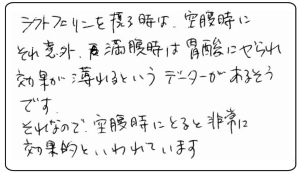 シクトフェリンを摂る時は、空腹時に
それ意外、満腹時は胃酸にやられ
効果が薄れるというデーターがあるそう
です。
それなので、空腹時にとると非常に
効果的といわれています